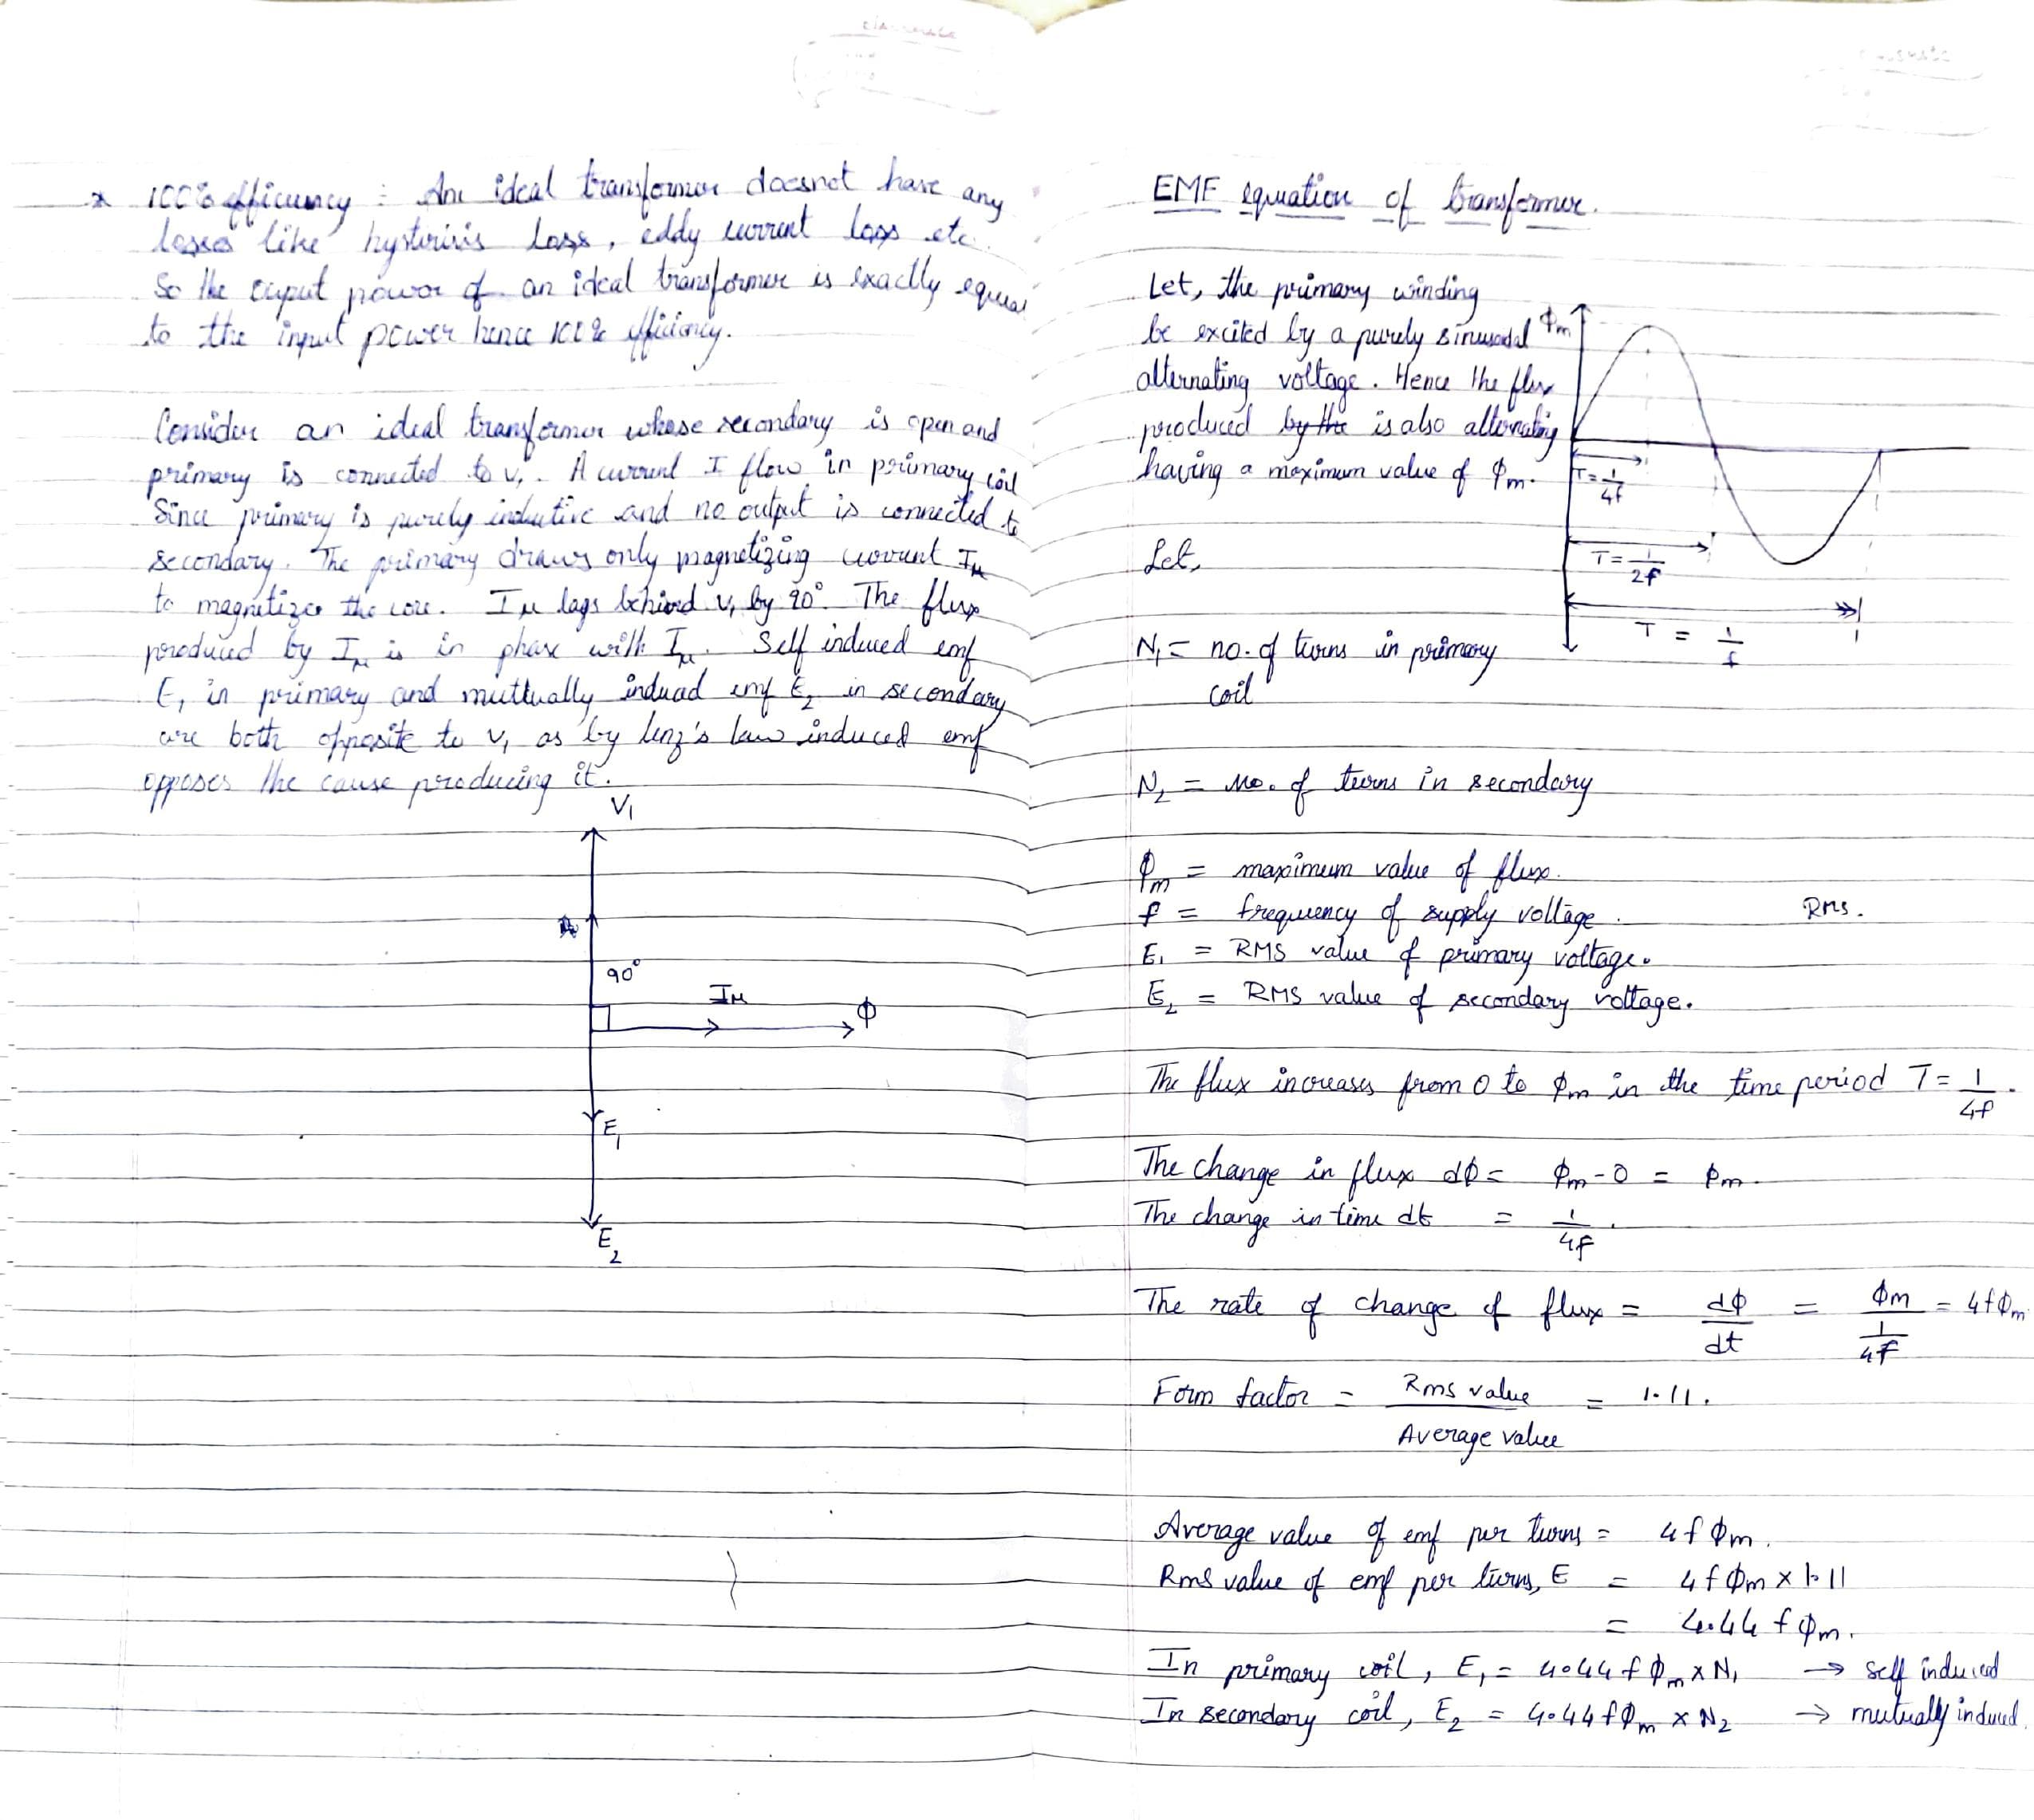 * 100% efficiency : An ideal transformer doesnot have any
losses like hysterisis loss, eddy current loss etc.
So the output power of an ideal transformer is exactly equal
to the input power hence 100% efficiency.
Consider an ideal transformer whose secondary is open and
primary is connected to V₁. A current I flow in primary coil
Since primary is purely inductive and no output is connected to
secondary. The primary draws only magnetizing current Iμ
to magnetize the core. Iμ lags behind V₁ by 90°. The flux
produced by Iμ is in phase with Iμ. Self induced emf
E₁ in primary and muttually induced emf E₂ in secondary
are both opposite to V₁ as by lenz's law induced emf
opposes the cause producing it.
V₁
90°
Iμ
Φ
E₁
E₂
EMF equation of transformer.
Let, the primary winding
be excited by a purely sinusodal
alternating voltage. Hence the flux
produced by the is also alternating
having a maximum value of Φm.
Φm
T = 1/4f
T = 1/2f
T = 1/f
Let,
N₁ = no. of turns in primary
coil
N₂ = no. of turns in secondary
Φm = maximum value of flux.
f = frequency of supply voltage.
RMS.
E₁ = RMS value of primary voltage.
E₂ = RMS value of secondary voltage.
The flux increases from 0 to Φm in the time period T = 1/4f.
The change in flux dΦ = Φm - 0 = Φm.
The change in time dt = 1/4f.
The rate of change of flux = dΦ/dt = Φm/(1/4f) = 4fΦm
Form factor = Rms value/Average value = 1.11.
Average value of emf per turns = 4fΦm.
Rms value of emf per turns, E = 4fΦm x 1.11
= 4.44 fΦm.
In primary coil, E₁ = 4.44fΦm x N₁ → self induced
In secondary coil, E₂ = 4.44fΦm x N₂ → mutually induced.